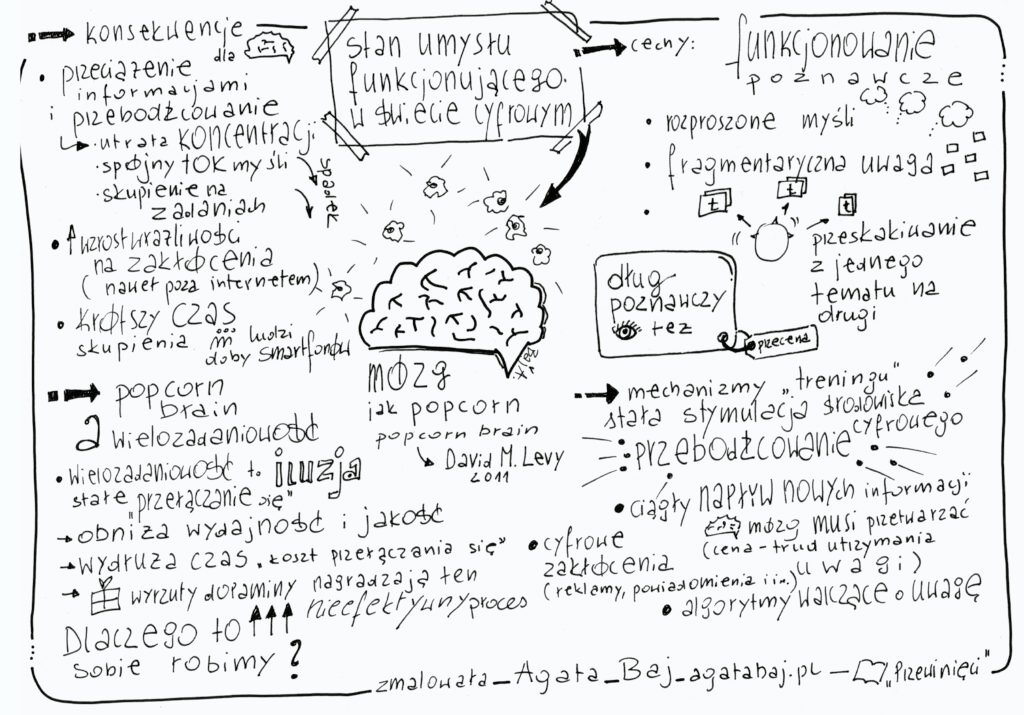 stan umysłu
funkcjonującego
w świecie cyfrowym
konsekwencje
dla
• przeciążenie
informacjami
i przebodźcowanie
utrata KONCENTRACJI
• spójny tok myśli
• skupienie na
zadaniach
spadek
• wzrost wrażliwości
na zakłócenia
(nawet poza internetem)
• krótszy czas
skupienia ludzi
doby smartfonów
mózg
jak popcorn
popcorn brain
David M. Levy
2011
BAJ
cechy:
funkcjonowanie
poznawcze
• rozproszone myśli
• fragmentaryczna uwaga
t t t
• przeskakiwanie
z jednego
tematu na
drugi
dług
poznawczy
też
przecena
popcorn
brain
a wielozadaniowość
• wielozadaniowość to iluzja
stałe "przełączanie się"
→ obniża wydajność i jakość
→ wydłuża czas "koszt przełączania się"
→ wyrzuty dopaminy nagradzają ten
nieefektywny proces
Dlaczego to
sobie robimy?
mechanizmy „treningu"
stała stymulacja środowiska
cyfrowego
przebodźcowanie
• ciągły napływ nowych informacji
mózg musi przetwarzać
(cena - trud utrzymania
uwagi)
• cyfrowe
zakłócenia
(reklamy, powiadomienia i in.)
• algorytmy walczące o uwagę
zmalowała_Agata_Baj_agatabaj.pl — „Przewinięci"